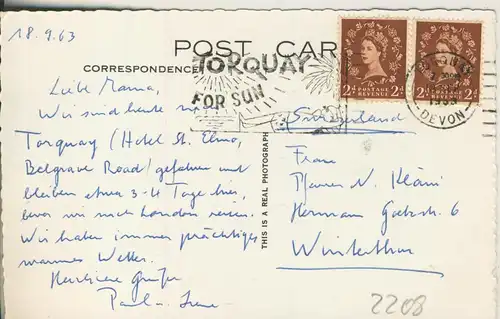 18.9.63
POST CARD
CORRESPONDENCE
TORQUAY
FOR SUN
Liebe Mama,
Wir sind heute
Torquay (Hotel St. Elmo,
Belgrave Road) gefahren und
bleiben etwa 3-4 Tage hier,
bevor wir nach London reisen.
Wir haben immer prächtiges
warmes Wetter.
Herzliche Grüsse
Paul u. Irene
THIS IS A REAL PHOTOGRAPH
2D POSTAGE REVENUE 2D
2D POSTAGE REVENUE 2D
TORQUAY
1963
DEVON
Switzerland
Frau
Pfarrer N.
Hermann Goetzstr. 6
Winterthur
2208